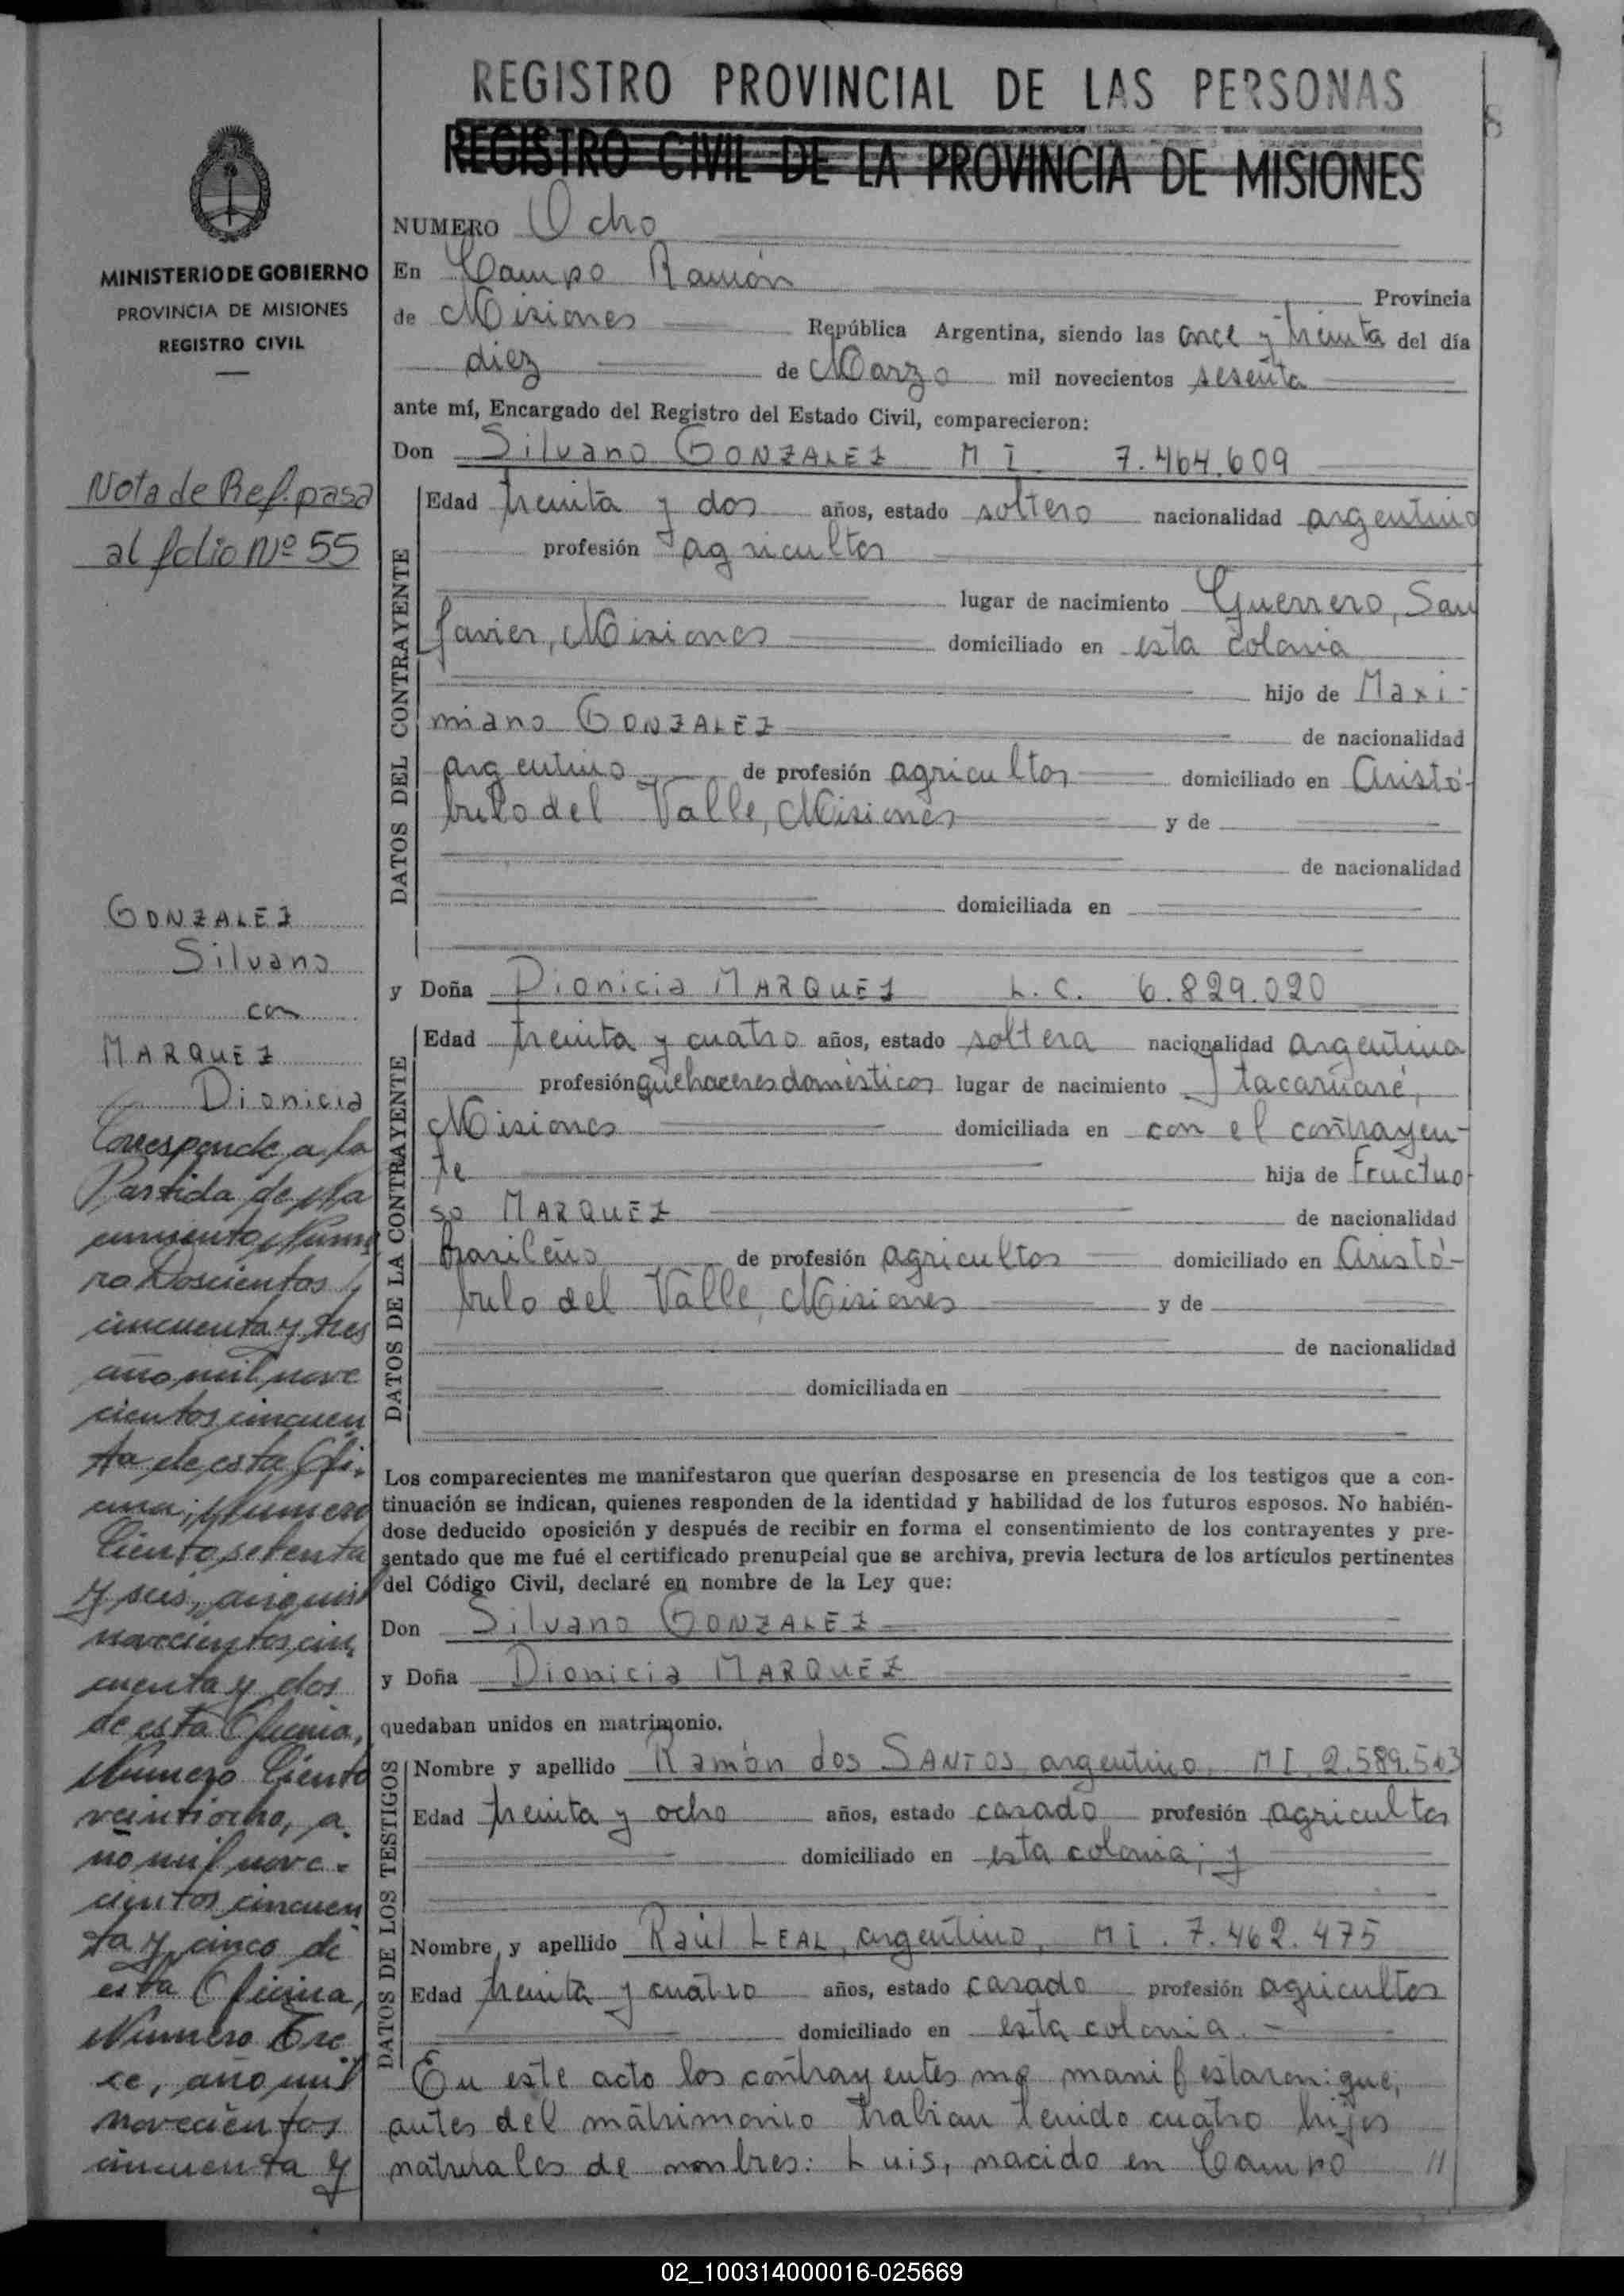 REGISTRO PROVINCIAL DE LAS PERSONAS
REGISTRO CIVIL DE LA PROVINCIA DE MISIONES
8
MINISTERIO DE GOBIERNO
PROVINCIA DE MISIONES
REGISTRO CIVIL
Nota de Ref. pasa
al folio Nº 55
GONZALEZ
Silvano
con
MARQUEZ
Dionicia
Corresponde a la
Partida de Na
cimiento Nume
ro Doscientos y
cincuenta y tres
año mil nove
cientos cincuen
ta de esta Ofi-
cina; Numero
Ciento setenta
y seis, año mil
novecientos cin
cuenta y dos
de esta Oficina,
Numero Ciento
veintiocho, a-
ño mil nove-
cientos cincuen
ta y cinco de
esta Oficina,
Numero Tre
ce, año mil
novecientos
cincuenta y
NUMERO Ocho
En Campo Ramón Provincia
de Misiones República Argentina, siendo las once y treinta del día
diez de Marzo mil novecientos sesenta
ante mí, Encargado del Registro del Estado Civil, comparecieron:
Don Silvano GONZALEZ M I 7.464.609
DATOS DEL CONTRAYENTE
Edad treinta y dos años, estado soltero nacionalidad argentino
profesión agricultor
lugar de nacimiento Guerrero, San
Javier, Misiones domiciliado en esta colonia
hijo de Maxi-
miano GONZALEZ de nacionalidad
argentino de profesión agricultor domiciliado en Aristó-
bulo del Valle, Misiones y de
de nacionalidad
domiciliada en
y Doña Dionicia MARQUEZ L. C. 6.829.020
DATOS DE LA CONTRAYENTE
Edad treinta y cuatro años, estado soltera nacionalidad argentina
profesión quehaceres domésticos lugar de nacimiento Itacaruaré,
Misiones domiciliada en con el contrayen-
te hija de Fructuo-
so MARQUEZ de nacionalidad
brasileño de profesión agricultor domiciliado en Aristó-
bulo del Valle, Misiones y de
de nacionalidad
domiciliada en
Los comparecientes me manifestaron que querían desposarse en presencia de los testigos que a con-
tinuación se indican, quienes responden de la identidad y habilidad de los futuros esposos. No habién-
dose deducido oposición y después de recibir en forma el consentimiento de los contrayentes y pre-
sentado que me fué el certificado prenupcial que se archiva, previa lectura de los artículos pertinentes
del Código Civil, declaré en nombre de la Ley que:
Don Silvano GONZALEZ
y Doña Dionicia MARQUEZ
quedaban unidos en matrimonio.
DATOS DE LOS TESTIGOS
Nombre y apellido Ramón dos SANTOS, argentino, MI 2.589.563
Edad treinta y ocho años, estado casado profesión agricultor
domiciliado en esta colonia; y
Nombre y apellido Raúl LEAL, argentino, MI. 7.462.475
Edad treinta y cuatro años, estado casado profesión agricultor
domiciliado en esta colonia.-
En este acto los contrayentes me manifestaron: que,
antes del matrimonio habian tenido cuatro hijos
naturales de nombres: Luis, nacido en Campo //
02_100314000016-025669